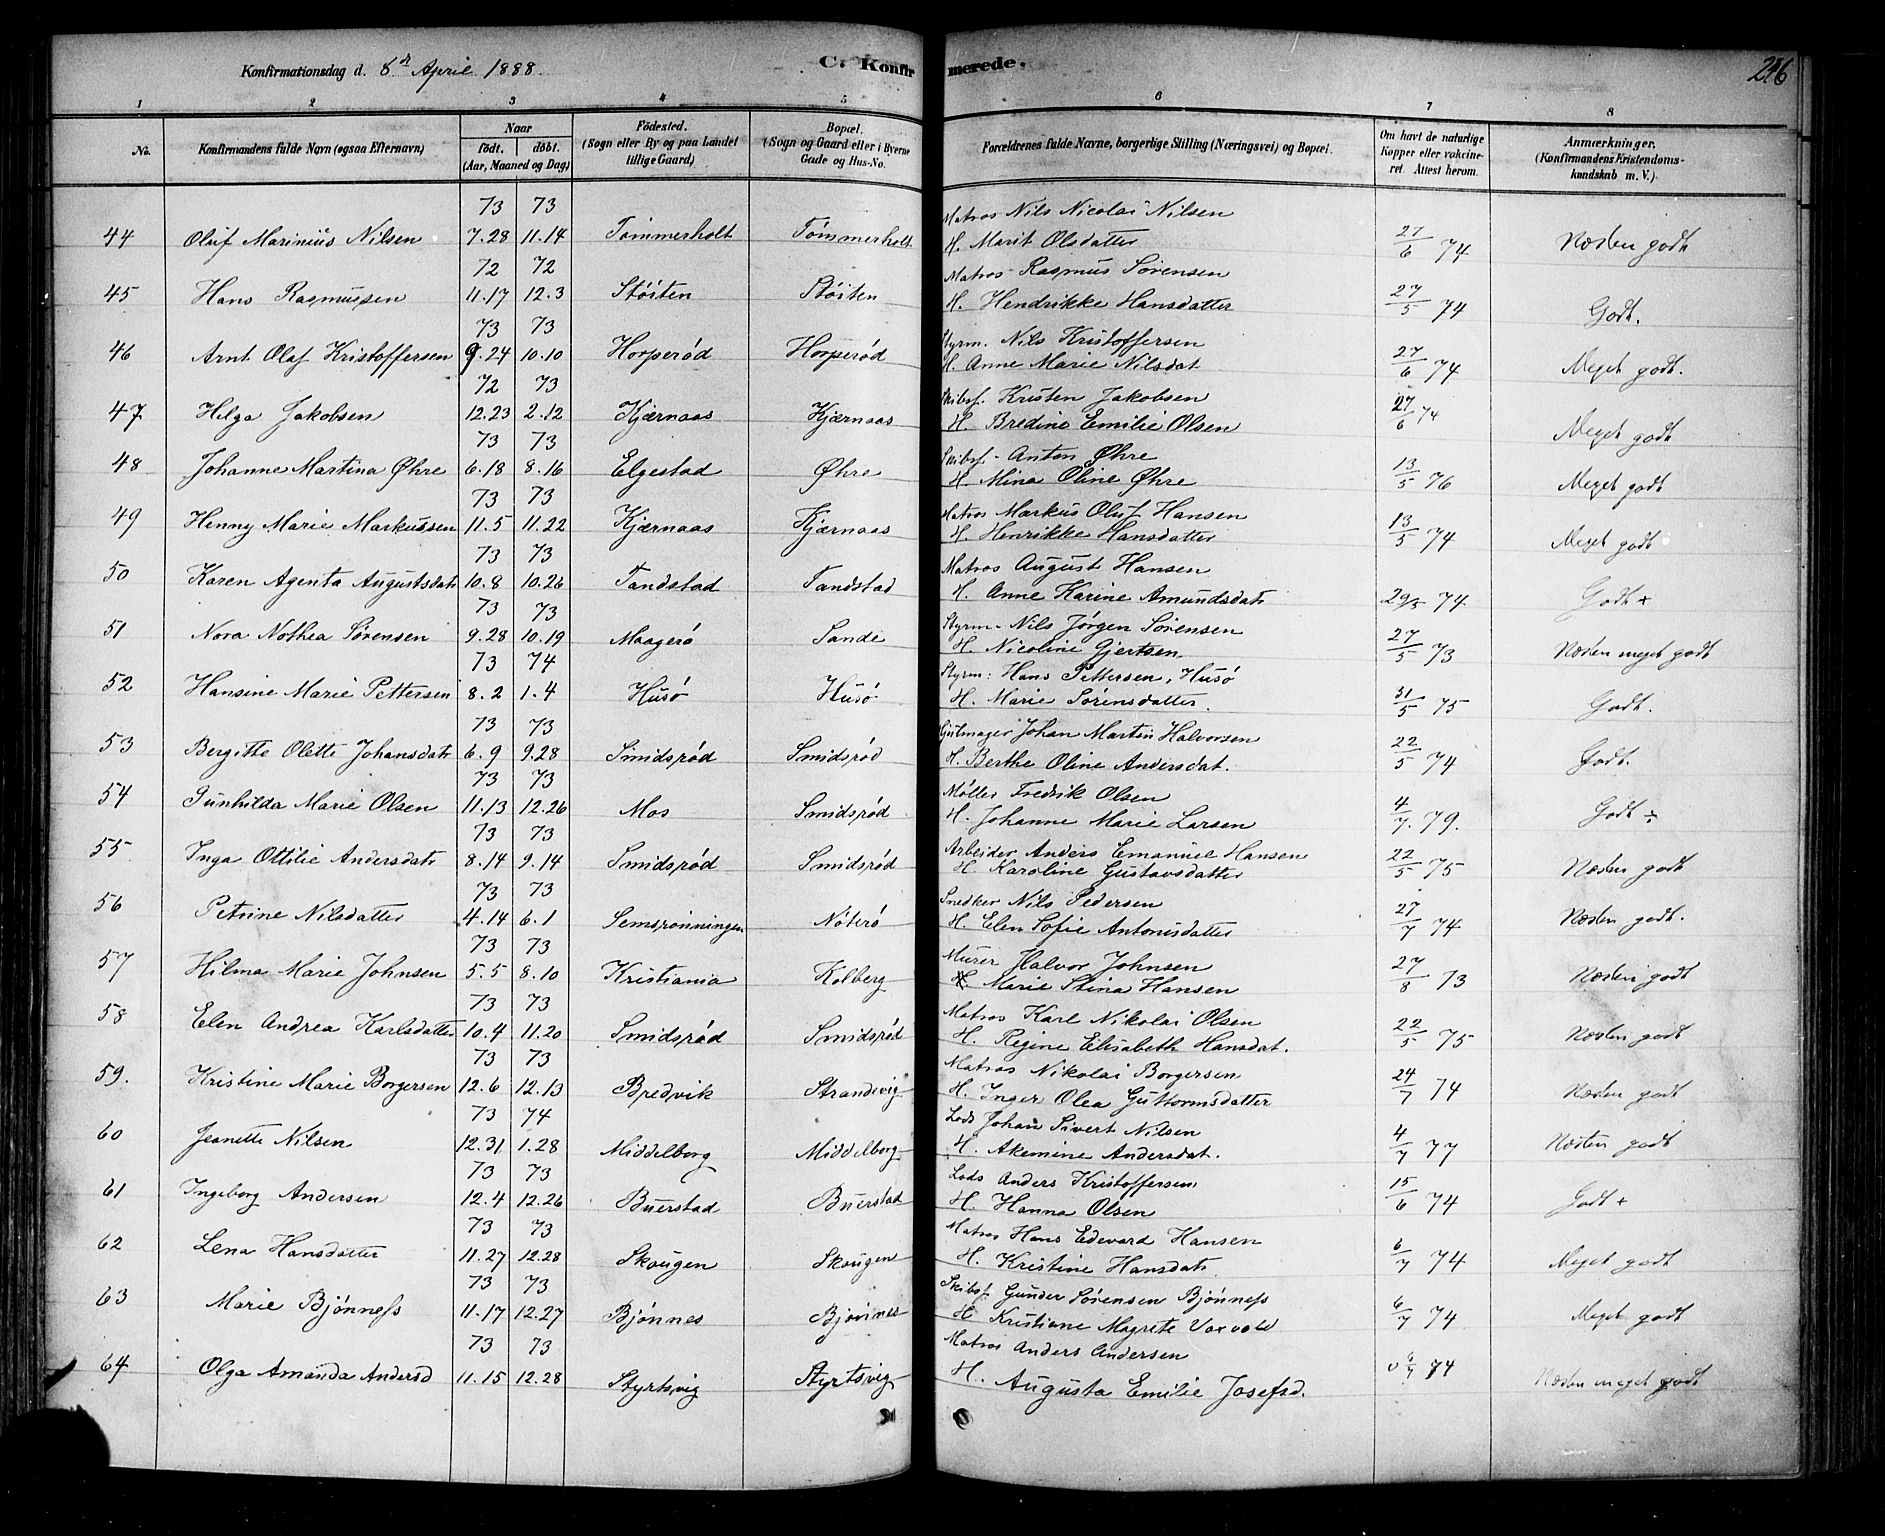 Konfirmationsdag d. 8de April 1888. C. Konfirmerede. 246
1 2 3 4 5 6 7 8
No. Konfirmandens fulde Navn (ogsaa Efternavn) Naar født. døbt. (Aar, Maaned og Dag) Fødested. (Sogn eller By og paa Landet tillige Gaard) Bopæl. (Sogn og Gaard eller i Byerne Gade og Hus-No. Forældrenes fulde Navne, borgerlige Stilling (Næringsvei) og Bopæl. Om havt de naturlige Kopper eller vakcineret Attest herom. Anmærkninger. (Konfirmandens Kristendomskundskab m. V.).
73 73 Matros Nils Nicolai Nilsen
44 Oluf Marinius Nilsen 7.28 11.14 Tømmerholt Tømmerholt H. Marit Olsdatter 27/6 74 Næsten godt
72 72 Matros Rasmus Sørensen
45 Hans Rasmussen 11.17 12.3 Støiten Støiten H. Hendrikke Hansdatter 27/5 74 Godt.
73 73 Styrm. Nils Kristoffersen
46 Arnt Olaf Kristoffersen 9.24 10.10 Horperød Horperød H. Anne Marie Nilsdat 27/6 74 Meget godt.
72 73 Skibsf. Kristen Jakobsen
47 Helga Jakobsen 12.23 2.12 Kjærnaas Kjærnaas H. Bredine Emilie Olsen 27/6 74 Meget godt
73 73 Skibsf. Anton Øhre
48 Johanne Martina Øhre 6.18 8.16 Elgestad Øhre H Mina Oline Øhre 13/5 76 Meget godt
73 73 Matros Markus Oluf Hansen
49 Henny Marie Markussen 11.5 11.22 Kjærnaas Kjærnaas H. Henrikke Hansdatter 13/5 74 Meget godt
73 73 Matros August Hansen
50 Karen Agenta Augustsdatr 10.8 10.26 Tandstad Tandstad H. Anne Karine Amundsdatr 29/5 74. Godt +
73 73 Styrm. Nils Jørgen Sørensen
51 Nora Nothea Sørensen 9.28 10.19 Maagerø Sande H. Nicoline Gjertsen 27/5 73 Næsten meget godt
73 74 Styrm: Hans Pettersen, Husø
52 Hansine Marie Pettersen 8.2 1.4 Husø Husø H. Marie Sørensdatter. 31/5 75 Godt.
73 73 Gulmager Johan Martin Halvorsen
53 Bergitte Olette Johansdatr 6.9 9.28 Smidsrød Smidsrød H. Berthe Oline Andersdat. 22/5 74 Godt.
73 73 Møller Fredrik Olsen
54 Gunhilda Marie Olsen 11.13 12.26 Mos Smidsrød H. Johanne Marie Larsen 4/7. 79. Godt ÷
73 73 Arbeider Anders Emanuel Hansen
55 Inga Ottilie Andersdatr 8.14 9.14 Smidsrød Smidsrød H. Karoline Gustavsdatter 22/5 75 Næsten godt
73 73 Snedker Nils Pedersen
56 Petrine Nilsdatter 4.14 6.1 Semsrønningen Nøterø H. Elen Sofie Antonisdatter 27/7 74 Næsten godt.
73 73 Murer Halvor Johnsen
57 Hilma Marie Johnsen 5.5 8.10 Kristiania Kolberg H. Marie Stina Hansen 27/8 73 Næsten godt
73 73 Matros Karl Nikolai Olsen
58 Elen Andrea Karlsdatter 10.4 11.20 Smidsrød Smidsrød H. Regine Elisabeth Hansdat. 22/5 75 Næsten godt
73 73 Matros Nikolai Borgersen
59. Kristine Marie Borgersen 12.6 12.13 Bredvik Strandvig H. Inger Olea Guttormsdatter 24/7 74 Næsten godt
73 74 Lods Johan Sivert Nilsen
60 Jeanette Nilsen 12.31 1.28 Middelborg Middelborg H. Akemine Andersdat. 4/7 77 Næsten godt
73 73 Lods Anders Kristoffersen
61 Ingeborg Andersen 12.4 12.26 Buerstad Buerstad H. Hanna Olsen 15/6 74 Godt +
73 73 Matros Hans Edevard Hansen
62 Lena Hansdatter 11.27 12.28 Skougen Skougen H. Kristine Hansdatr. 6/7 74 Meget godt
73 73 Skibsf. Gunder Sørensen Bjønness
63 Marie Bjønness 11.17 12.27 Bjønnes Bjønnes H Kristiane Magrete Voxvold 6/7 74 Meget godt
73 73 Matros Anders Andersen
64 Olga Amanda Andersd 11.15 12.28 Styrtsvig Styrtsvig H. Augusta Emilie Josefsd. 6/7 74 Næsten meget godt